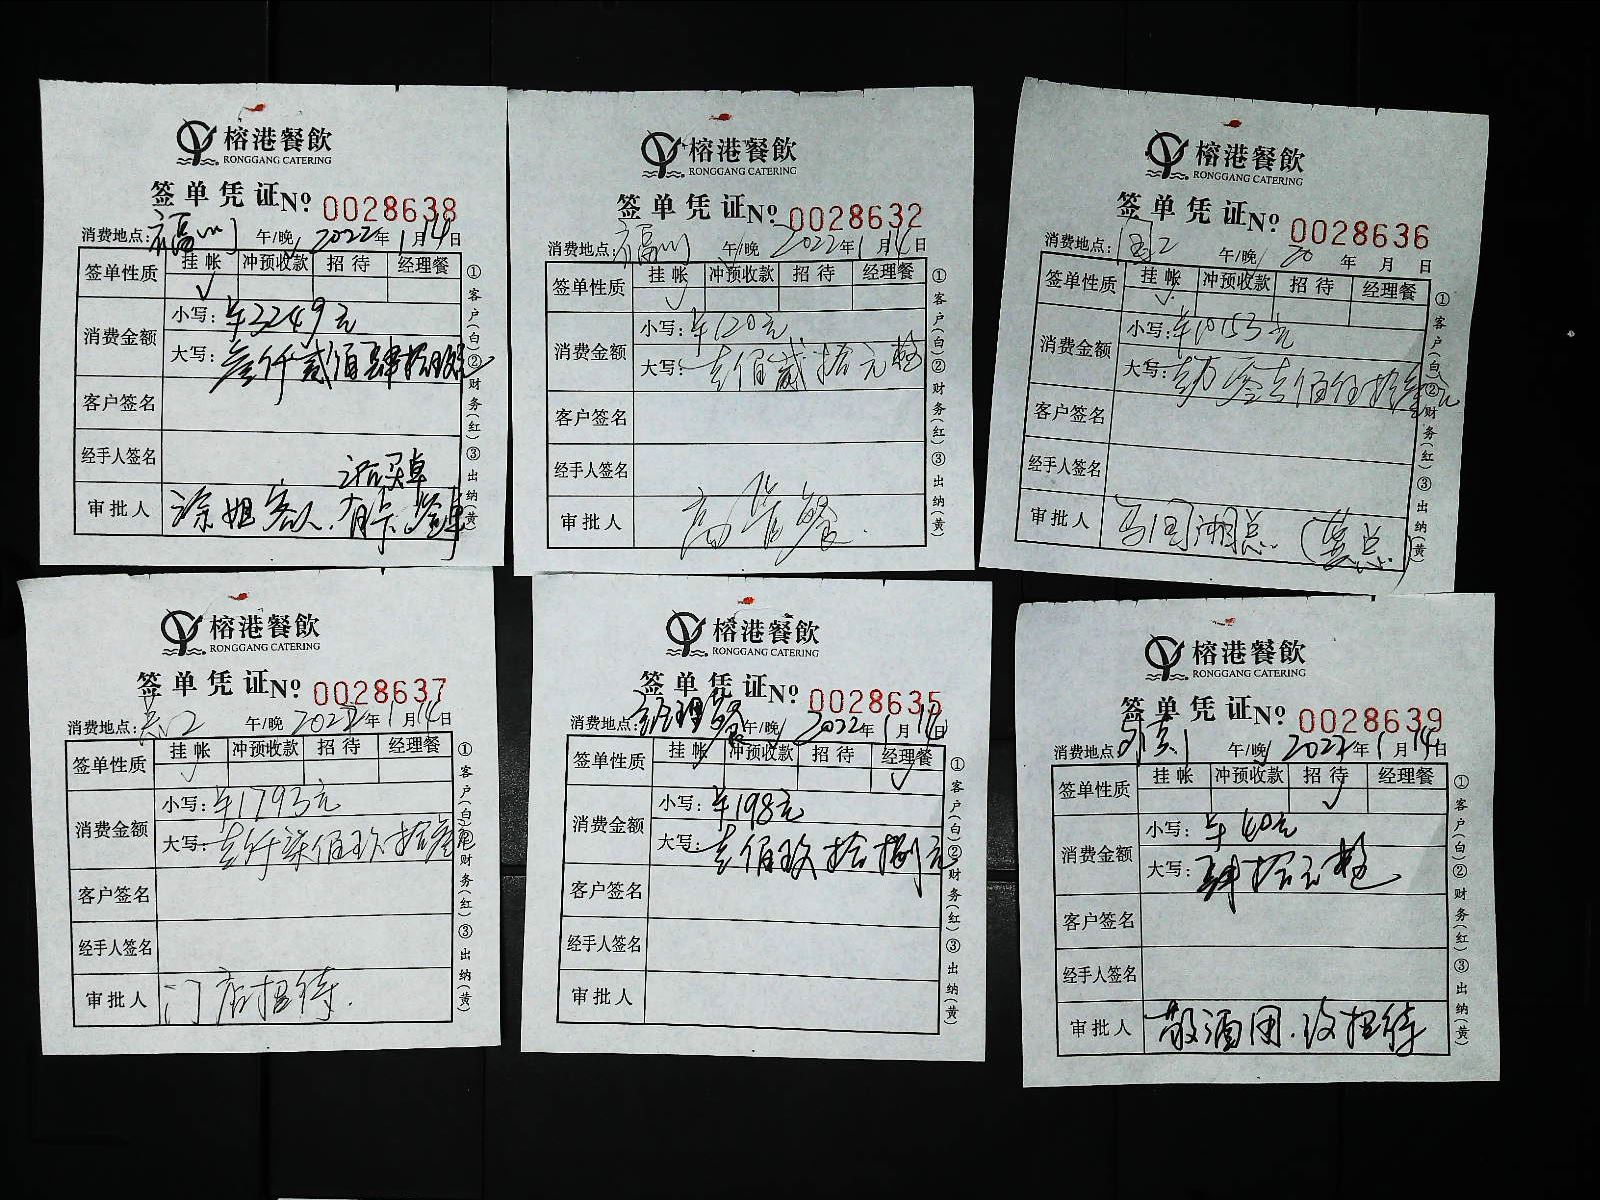 榕港餐飲
RONGGANG CATERING
签单凭证 № 0028638
消费地点: 福州 午/晚 2022年1月14日
签单性质 挂帐 冲预收款 招待 经理餐
✓
消费金额 小写: ¥3249元
大写: 叁仟贰佰肆拾玖元
客户签名
经手人签名
审批人 涂姐客人.有卡签单
①客户(白)②财务(红)③出纳(黄)
榕港餐飲
RONGGANG CATERING
签单凭证 № 0028632
消费地点: 福州 午/晚 2022年1月14日
签单性质 挂帐 冲预收款 招待 经理餐
✓
消费金额 小写: ¥120元
大写: 壹佰贰拾元整
客户签名
经手人签名
审批人 高管餐.
①客户(白)②财务(红)③出纳(黄)
榕港餐飲
RONGGANG CATERING
签单凭证 № 0028636
消费地点: 午/晚 20 年 月 日
签单性质 挂帐 冲预收款 招待 经理餐
✓
消费金额 小写: ¥10153元
大写: 壹万零壹佰伍拾叁元
客户签名
经手人签名
审批人 马国湖总(龚总)
①客户(白)②财务(红)③出纳(黄)
榕港餐飲
RONGGANG CATERING
签单凭证 № 0028637
消费地点: 午/晚 2022年1月14日
签单性质 挂帐 冲预收款 招待 经理餐
✓
消费金额 小写: ¥1793元
大写: 壹仟柒佰玖拾叁元
客户签名
经手人签名
审批人 门店招待.
①客户(白)②财务(红)③出纳(黄)
榕港餐飲
RONGGANG CATERING
签单凭证 № 0028635
消费地点: 经理餐 午/晚 2022年1月14日
签单性质 挂帐 冲预收款 招待 经理餐
✓
消费金额 小写: ¥198元
大写: 壹佰玖拾捌元
客户签名
经手人签名
审批人
①客户(白)②财务(红)③出纳(黄)
榕港餐飲
RONGGANG CATERING
签单凭证 № 0028639
消费地点: 午/晚 2022年1月14日
签单性质 挂帐 冲预收款 招待 经理餐
✓
消费金额 小写: ¥40元
大写: 肆拾元整
客户签名
经手人签名
审批人 散酒用.改招待
①客户(白)②财务(红)③出纳(黄)